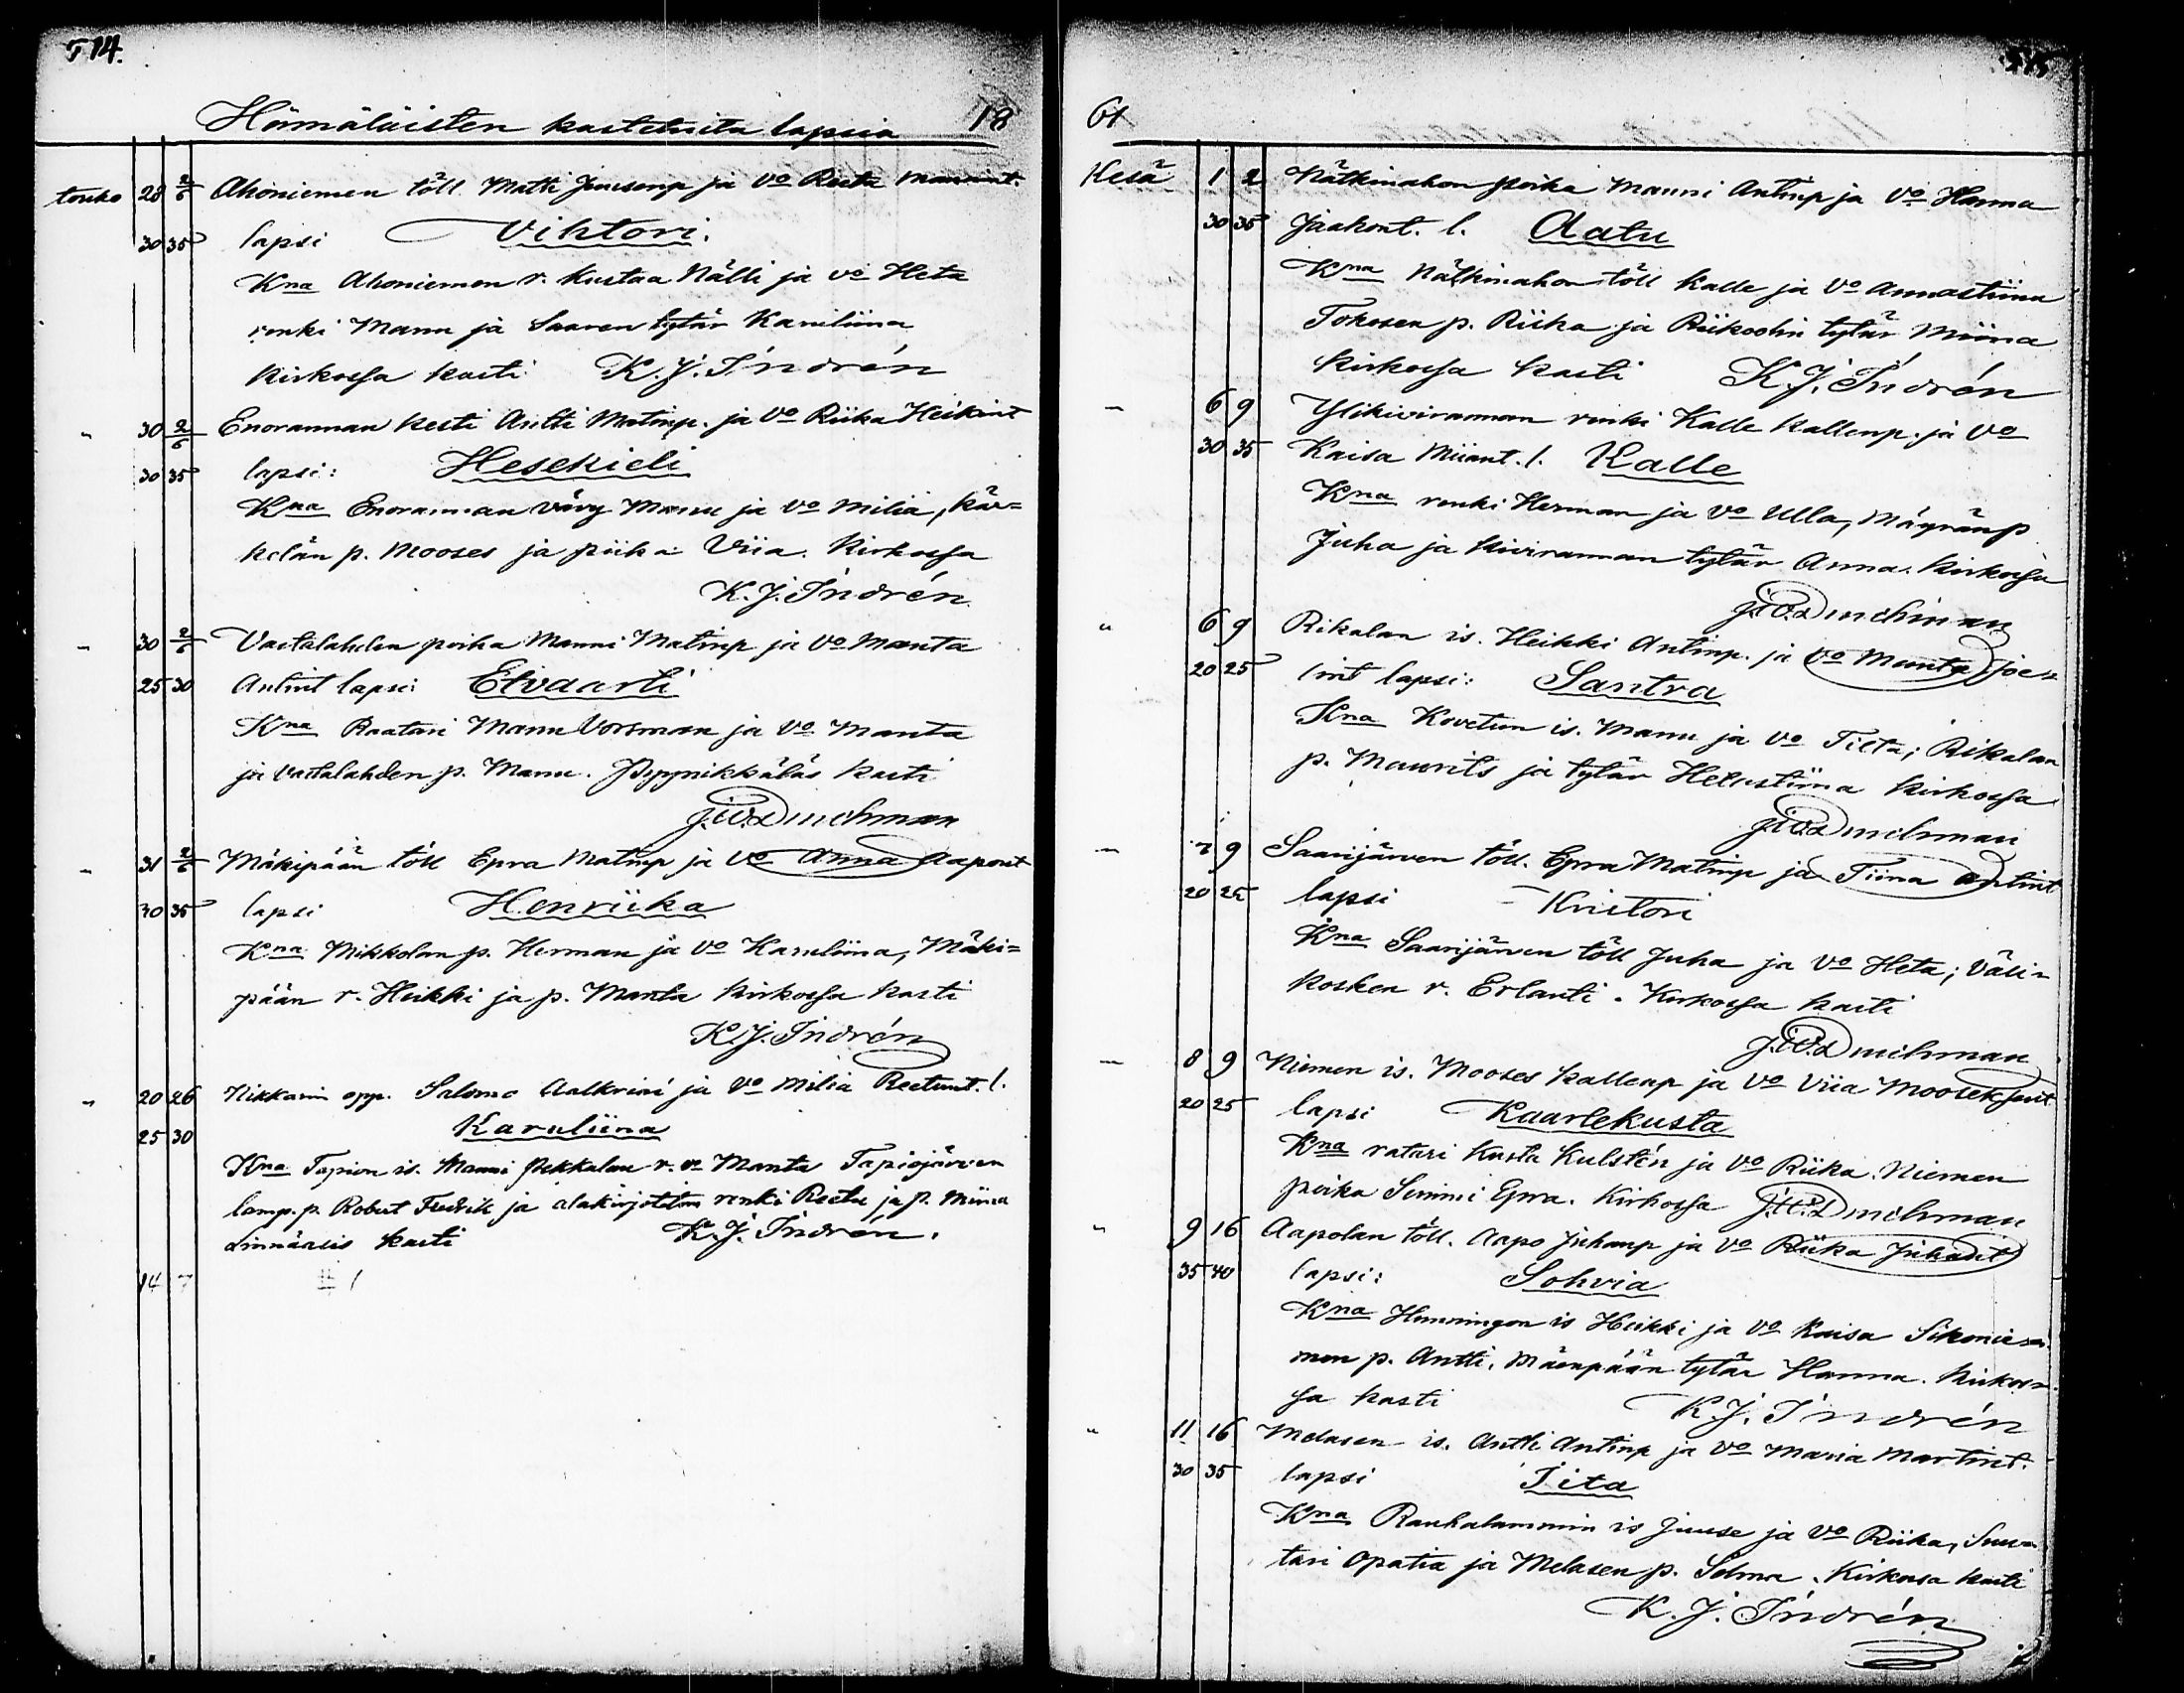 T 14.
Hämäläisten kastetuita lapsia 18
touko 28 2/6 Ahoniemen töll. Matti Juusenp ja Vo Reeta Mannint.
30 35 lapsi Vihtori.
Kna Ahoniemen r. Kustaa Nälli ja vo Heta
renki Manu ja Saaren tytär Karuliina
Kirkossa kasti K. J. Indrén
" 30 2/6 Enorannan kesti Antti Matinp. ja Vo Riika Heikint
30 35 lapsi: Hesekieli
Kna Enorannan vävy Manu ja Vo Milia, Kär=
kelän p. Mooses ja piika Viia. Kirkossa
K. J. Indrén
" 30 2/6 Vastalahden poika Manni Matinp ja Vo Manta
25 30 Antint lapsi: Etvaarti
Kna Raatari Manu Vorsman ja Vo Manta
ja Vastalahden p. Manu. Pyynikkäläs kasti
31 2/6 Mäkipään töll Epra Matinp ja Vo Anna Aapont
30 35 lapsi Henriika
Kna Mikkolan p. Herman ja Vo Karuliina, Mäki=
pään r. Heikki ja p. Manta Kirkossa kasti
K. J. Indrén
" 20 26 Nikkarin opp. Salomo Aalkrini ja Vo Milia Reetunt. l.
25 30 Karuliina
Kna Tapion is. Manni Pekkalan r. v. Manta Tapiojärven
lamp. p. Robert Fredrik ja alakirjoitetun renki Reetu ja p. Miina
Linnäasis kasti K. J. Indrén.
14 7 # 1
61
Kesä 1 2 Nätkinahon poika Manni Antinp ja Vo Hanna
30 35 Jaakont. l. Aatu
Kna Nätkinahon töll Kalle ja Vo Annastiina
Tokosen p. Riika ja Riikoolin tytär Miina
Kirkossa kasti K. J. Indrén
— 6 9 Ylikiviranman renki Kalle Kallenp. ja Vo
30 35 Kaisa Miiant. l. Kalle
Kna renki Herman ja Vo Ulla, Mäyränp
Juho ja Kivirannan tytär Anna. Kirkossa
" 6 9 Rikalan is. Heikki Antinp. ja Vo Manta Joe=
20 25 lint lapsi: Santra
Kna Kovetun is. Manu ja Vo Tilta; Rikalan
p. Maurits ja tytär Helustiina Kirkossa
— 7 9 Saarijärven töll. Epra Matinp ja Tiina Antint
20 25 lapsi Kristori
Kna Saarijärven töll Juha ja Vo Heta; Väli=
kosken r. Erlanti. Kirkossa kasti
— 8 9 Niemen is. Mooses Kallenp ja Vo Viia Mooseksent
20 25 lapsi Kaarlekusta
Kna ratari Kusta Kulstén ja Vo Riika. Niemen
poika Simmi Epra. Kirkossa
" 9 16 Aapolan töll. Aapo Juhanp ja Vo Riika Juhant
35 40 lapsi: Sohvia
Kna Hunningon is Heikki ja Vo Kaisa Sikonie=
men p. Antti. Mäenpään tytär Hanna. Kirkos=
sa kasti K. J. Indrén
" 11 16 Melasen is. Antti Antinp ja Vo Maria Martint.
30 35 lapsi Iita
Kna Rauhalammin is Juuse ja Vo Riika, Suu=
tari Opatia ja Melasen p. Selma. Kirkossa kasti
K. J. Indrén